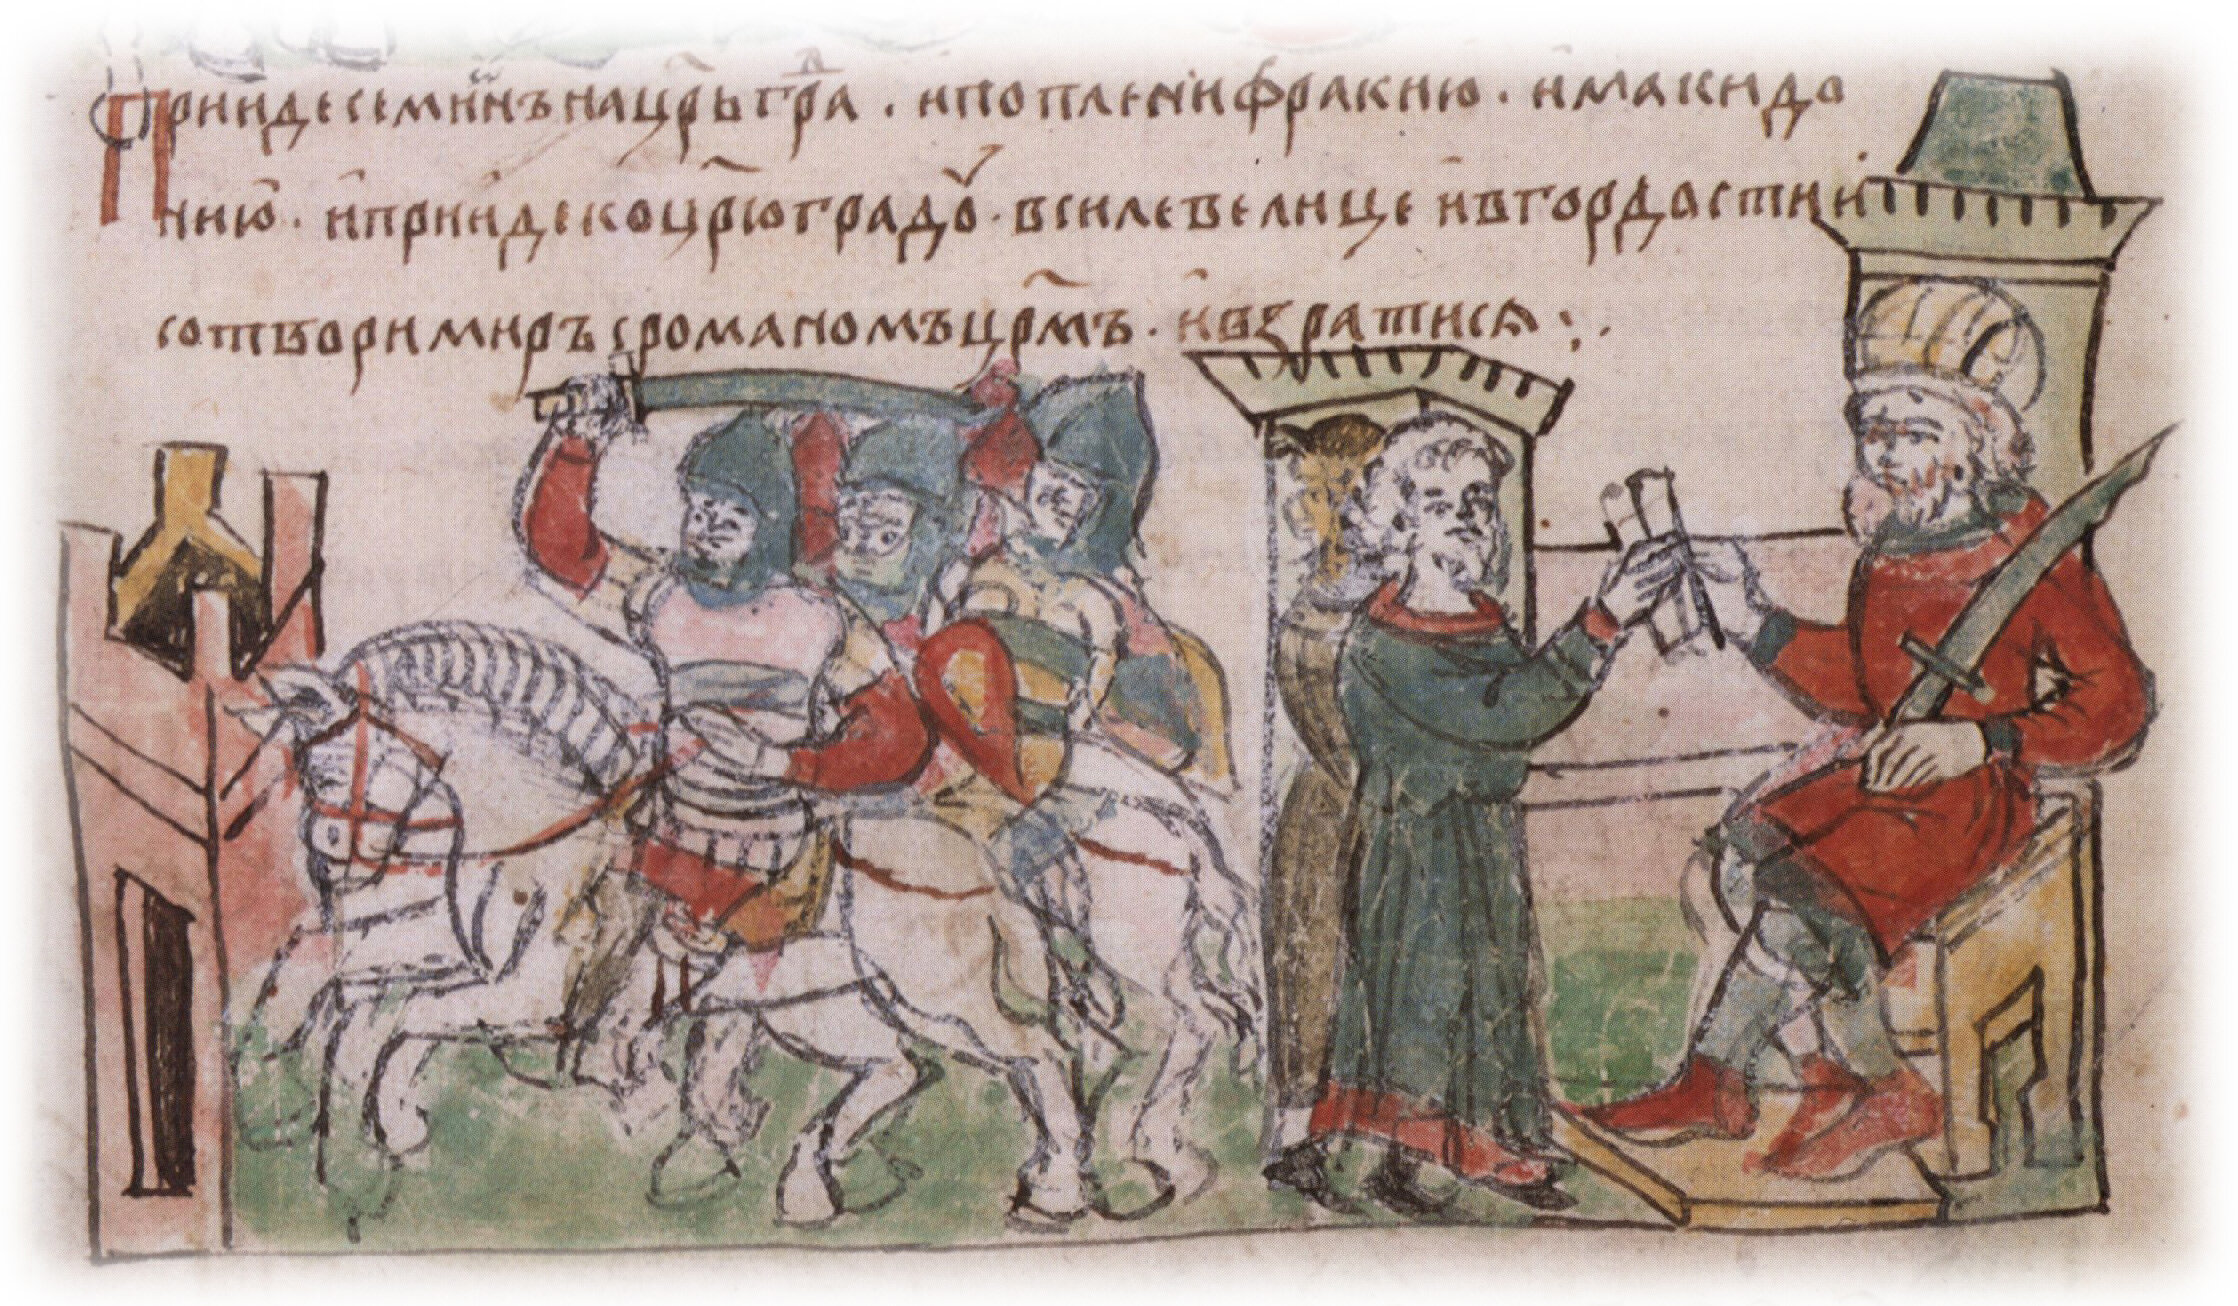 Прииде семиѡ́нъ на цр҃ьгра́д . и поплени фракию . и макидо
нию . и прииде ко цр҃югра́дѹ . в силе велице и в гордости и
сотвори миръ с романомъ цр҃мъ . и взратися :.